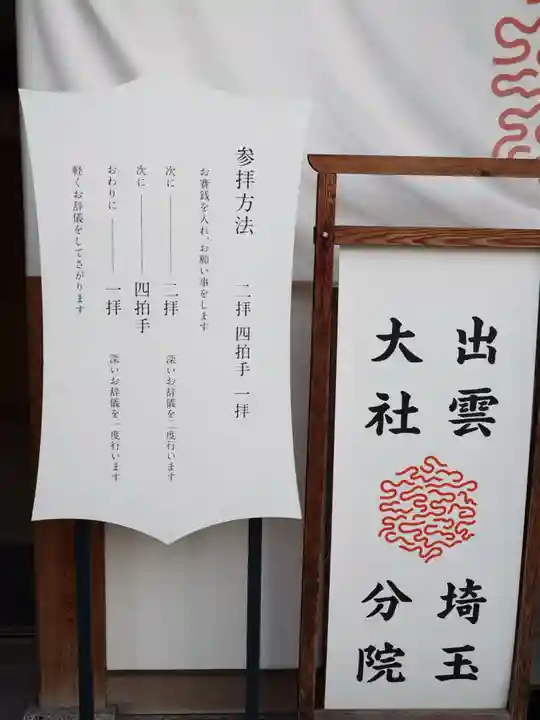 参拝方法　二拝 四拍手 一拝
お賽銭を入れ、お願い事をします
次に――――二拝　深いお辞儀を二度行います
次に――――四拍手
おわりに――――一拝　深いお辞儀を一度行います
軽くお辞儀をしてさがります
出雲
大社
埼玉
分院